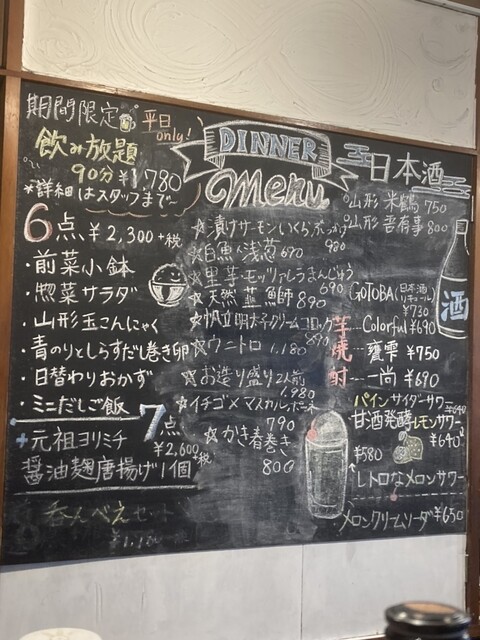 期間限定
平日only!
飲み放題
90分 ¥1,780
*詳細はスタッフまで
6点 ¥2,300+税
・前菜小鉢
・惣菜サラダ
・山形玉こんにゃく
・青のりとしらすだし巻き卵
・日替わりおかず
・ミニだしご飯
7点
¥2,600+税
+元祖ヨリミチ
醤油麹唐揚げ1個
呑んべえセット
¥1,180
DINNER
menu
☆漬けサーモンいくらぶっかけ 980
☆白魚と浅葱 690
☆里芋モッツァレラまんじゅう 690
☆天然 鰤 890
☆帆立明太クリームコロッケ 890
☆ウニトロ 1,180
☆お造り盛り2人前 1,980
☆イチゴ×マスカルポーネ 790
☆かき春巻き 800
日本酒
山形 米鶴 750
山形 800
酒
GOTOBA(日本酒リキュール) ¥730
芋焼酎
Colorful ¥690
甕雫 ¥750
一尚 ¥690
パインサイダーサワー ¥640
甘酒発酵レモンサワー ¥640
¥580
レトロなメロンサワー
メロンクリームソーダ ¥650